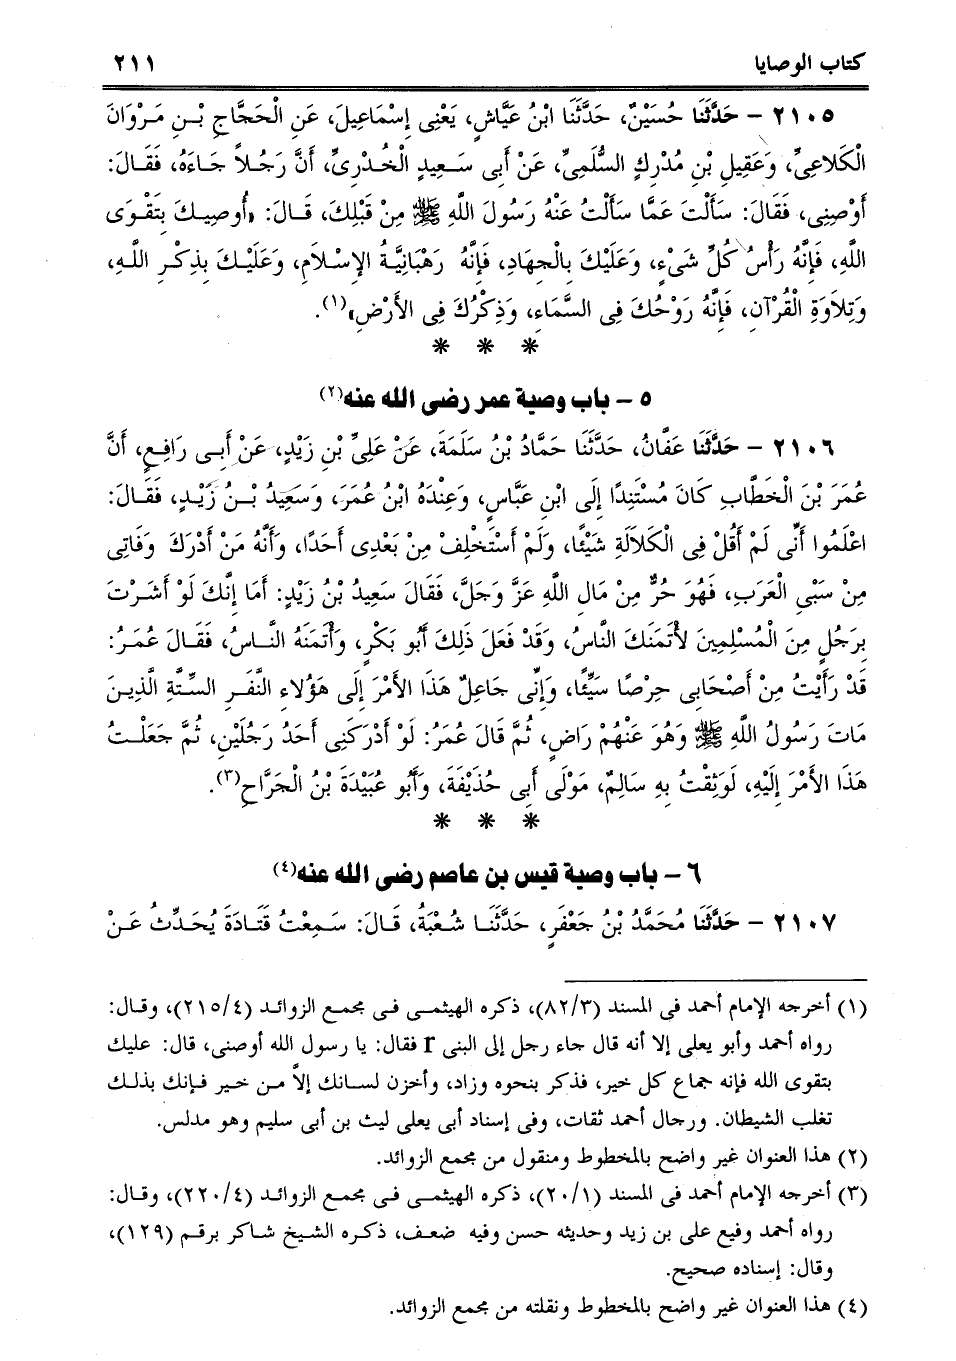 كتاب الوصايا ٢١١
٢١٠٥ – حَدَّثَنَا حُسَيْنٌ، حَدَّثَنَا ابْنُ عَيَّاشٍ، يَعْنِى إِسْمَاعِيلَ، عَنِ الْحَجَّاجِ بْنِ مَرْوَانَ
الْكَلاَعِىِّ، وَعَقِيلِ بْنِ مُدْرِكٍ السُّلَمِىِّ، عَنْ أَبِى سَعِيدٍ الْخُدْرِىِّ، أَنَّ رَجُلاً جَاءَهُ، فَقَالَ:
أَوْصِنِى، فَقَالَ: سَأَلْتَ عَمَّا سَأَلْتُ عَنْهُ رَسُولَ اللَّهِ ﷺ مِنْ قَبْلِكَ، قَالَ: «أُوصِيكَ بِتَقْوَى
اللَّهِ، فَإِنَّهُ رَأْسُ كُلِّ شَىْءٍ، وَعَلَيْكَ بِالْجِهَادِ، فَإِنَّهُ رَهْبَانِيَّةُ الإِسْلاَمِ، وَعَلَيْكَ بِذِكْرِ اللَّهِ،
وَتِلاَوَةِ الْقُرْآنِ، فَإِنَّهُ رَوْحُكَ فِى السَّمَاءِ، وَذِكْرُكَ فِى الأَرْضِ»(١).
* * *
٥ – باب وصية عمر رضى الله عنه(٢)
٢١٠٦ – حَدَّثَنَا عَفَّانُ، حَدَّثَنَا حَمَّادُ بْنُ سَلَمَةَ، عَنْ عَلِىِّ بْنِ زَيْدٍ، عَنْ أَبِى رَافِعٍ، أَنَّ
عُمَرَ بْنَ الْخَطَّابِ كَانَ مُسْتَنِدًا إِلَى ابْنِ عَبَّاسٍ، وَعِنْدَهُ ابْنُ عُمَرَ، وَسَعِيدُ بْنُ زَيْدٍ، فَقَالَ:
اعْلَمُوا أَنِّى لَمْ أَقُلْ فِى الْكَلاَلَةِ شَيْئًا، وَلَمْ أَسْتَخْلِفْ مِنْ بَعْدِى أَحَدًا، وَأَنَّهُ مَنْ أَدْرَكَ وَفَاتِى
مِنْ سَبْىِ الْعَرَبِ، فَهُوَ حُرٌّ مِنْ مَالِ اللَّهِ عَزَّ وَجَلَّ، فَقَالَ سَعِيدُ بْنُ زَيْدٍ: أَمَا إِنَّكَ لَوْ أَشَرْتَ
بِرَجُلٍ مِنَ الْمُسْلِمِينَ لأْتَمَنَكَ النَّاسُ، وَقَدْ فَعَلَ ذَلِكَ أَبُو بَكْرٍ، وَأْتَمَنَهُ النَّاسُ، فَقَالَ عُمَرُ:
قَدْ رَأَيْتُ مِنْ أَصْحَابِى حِرْصًا سَيِّئًا، وَإِنِّى جَاعِلٌ هَذَا الأَمْرَ إِلَى هَؤُلاَءِ النَّفَرِ السِّتَّةِ الَّذِينَ
مَاتَ رَسُولُ اللَّهِ ﷺ وَهُوَ عَنْهُمْ رَاضٍ، ثُمَّ قَالَ عُمَرُ: لَوْ أَدْرَكَنِى أَحَدُ رَجُلَيْنِ، ثُمَّ جَعَلْتُ
هَذَا الأَمْرَ إِلَيْهِ، لَوَثِقْتُ بِهِ سَالِمٌ، مَوْلَى أَبِى حُذَيْفَةَ، وَأَبُو عُبَيْدَةَ بْنُ الْجَرَّاحِ(٣).
* * *
٦ – باب وصية قيس بن عاصم رضى الله عنه(٤)
٢١٠٧ – حَدَّثَنَا مُحَمَّدُ بْنُ جَعْفَرٍ، حَدَّثَنَا شُعْبَةُ، قَالَ: سَمِعْتُ قَتَادَةَ يُحَدِّثُ عَنْ
(١) أخرجه الإمام أحمد فى المسند (٨٢/٣)، ذكره الهيثمى فى مجمع الزوائد (٢١٥/٤)، وقال:
رواه أحمد وأبو يعلى إلا أنه قال جاء رجل إلى النبى r فقال: يا رسول الله أوصنى، قال: عليك
بتقوى الله فإنه جماع كل خير، فذكر بنحوه وزاد، وأخزن لسانك إلاَّ من خير فإنك بذلك
تغلب الشيطان. ورجال أحمد ثقات، وفى إسناد أبى يعلى ليث بن أبى سليم وهو مدلس.
(٢) هذا العنوان غير واضح بالمخطوط ومنقول من مجمع الزوائد.
(٣) أخرجه الإمام أحمد فى المسند (٢٠/١)، ذكره الهيثمى فى مجمع الزوائد (٢٢٠/٤)، وقال:
رواه أحمد وفيع على بن زيد وحديثه حسن وفيه ضعف، ذكره الشيخ شاكر برقم (١٢٩)،
وقال: إسناده صحيح.
(٤) هذا العنوان غير واضح بالمخطوط ونقلته من مجمع الزوائد.